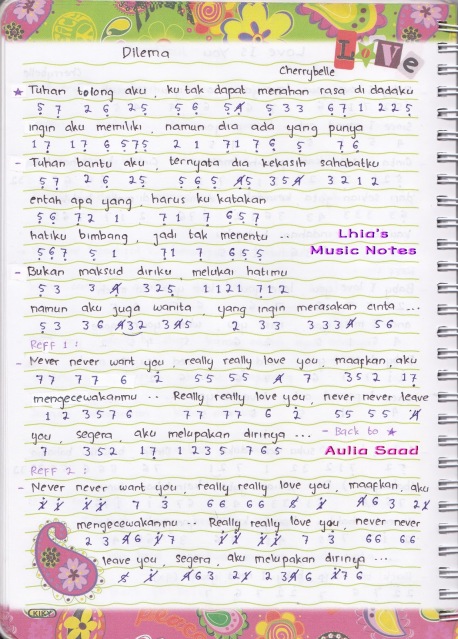 Dilema
LOVe
Cherrybelle
★ Tuhan tolong aku, ku tak dapat menahan rasa di dadaku
5 7 2 6 2 5 5 6 5 4 5 3 3 6 7 1 2 2 5
ingin aku memiliki, namun dia ada yang punya
1 7 1 7 6 5 7 5 2 1 7 1 7 6 5 7 6
- Tuhan bantu aku, ternyata dia kekasih sahabatku
5 7 2 6 2 5 5 6 5 4 5 3 5 4 3 2 1 2
entah apa yang, harus ku katakan
5 6 7 2 1 7 1 7 6 5 7
hatiku bimbang, jadi tak menentu ..
5 6 7 5 1 7 1 7 6 5 5
Lhia's
Music Notes
- Bukan maksud diriku, melukai hatimu
5 3 3 4 3 2 5 1 1 2 1 7 1 2
namun aku juga wanita, yang ingin merasakan cinta ...
5 3 3 6 4 3 2 3 4 5 2 3 3 3 3 3 4 5 6
Reff 1 :
- Never never want you, really really love you, maafkan, aku
7 7 7 7 6 2 5 5 5 5 4 7 3 5 2 1 7
mengecewakanmu .. Really really love you, never never leave
1 2 3 5 7 6 7 7 7 7 6 2 5 5 5 5 4
you, segera, aku melupakan dirinya ... - Back to ★
7 3 5 2 1 7 1 2 3 5 7 6 5
Aulia Saad
Reff 2 :
- Never never want you, really really love you, maafkan, aku
1 1 1 1 7 3 6 6 6 6 5 1 4 6 3 2 1
mengecewakanmu .. Really really love you, never never
2 3 4 6 1 7 1 1 1 1 7 3 6 6 6 6
leave you, segera, aku melupakan dirinya ...
5 1 4 6 3 2 1 2 3 4 6 1 7 6
KIKY